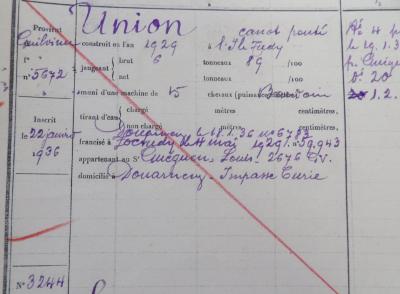 Provient
Guilvinec
n° 5672
Union canot ponté
construit en l'an 1929 à l'Ile Tudy
jaugeant brut 6 tonneaux 89 /100
net tonneaux /100
muni d'une machine de 15 chevaux (puissance
tirant d'eau chargé mètres centimètres,
non chargé mètres centimètres,
Inscrit
le 22 janvier
1936
Douarnenez le 18.1.36 n° 6783
francisé à Loctudy le 4 mai 1929 1. 59.943
appartenant au Sr Louis. 2676 Dv.
domicilié à Douarnenez - Impasse Curie
N° 3244
Dé 4 p
le 29.1.3
p.
D. 20
1.2.